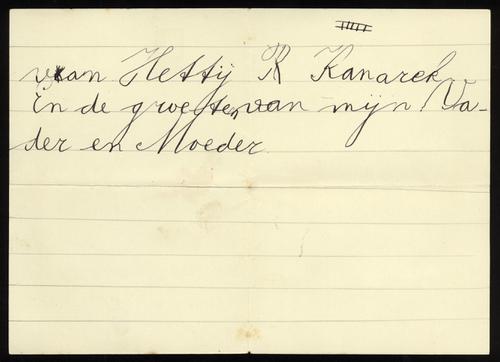 van Hettij R Kanarek
En de groeten van mijn Va-
der en Moeder